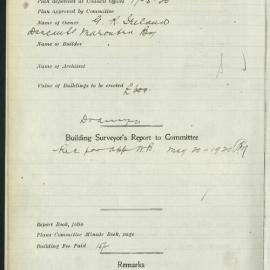 Plan deposited at Council Offices
Plan approved by Committee
Name of Owner G. R. Ireland
Maroubra Bay
Name of Builder
Name of Architect
Value of Buildings to be erected £600
Drawings
Building Surveyor's Report to Committee
Rec for app W.B. May 20-1920
Report Book, folio
Plans Committee Minute Book, page
Building Fee Paid 15/-
Remarks